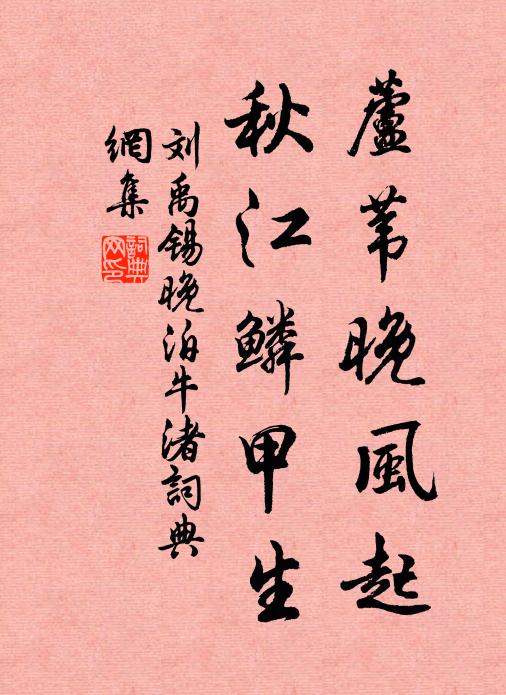 蘆苇晚風起
秋江鱗甲生
刘禹锡晚泊牛渚詞典
網集
詞典网印